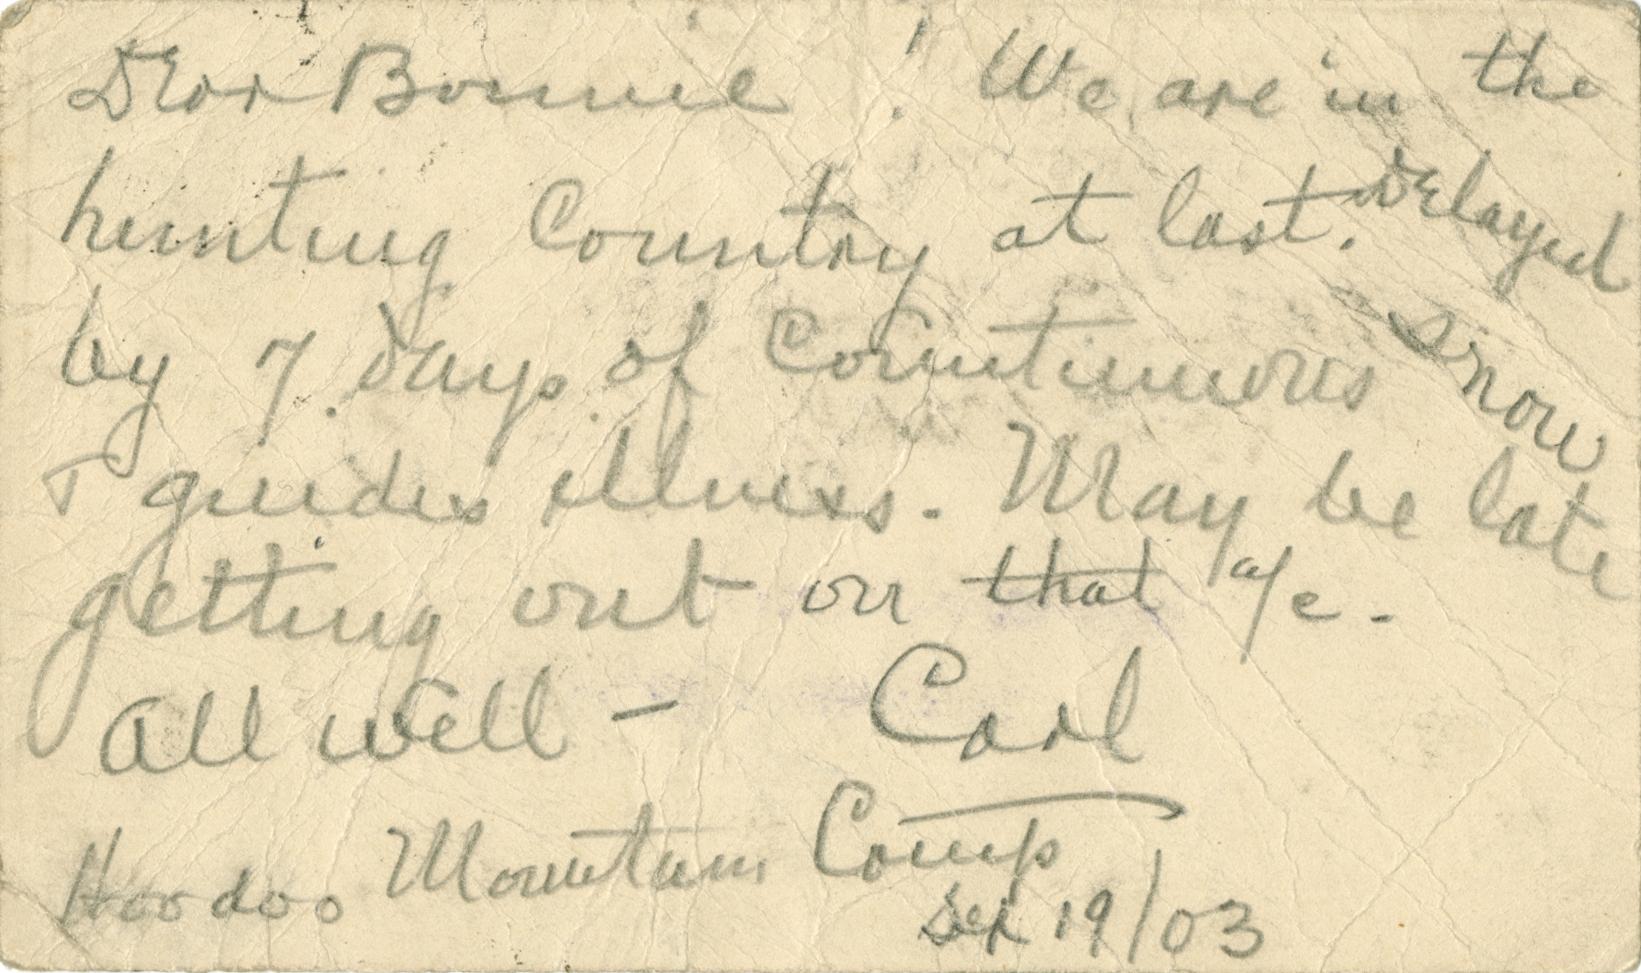 Dear Bonnie! We are in the
hunting Country at last. Delayed
by 7 days of Continuous snow
& guides illness. May be late
getting out on that a/c.
All well - Carl
Hoodoo Mountain Camp
Sep 19/03